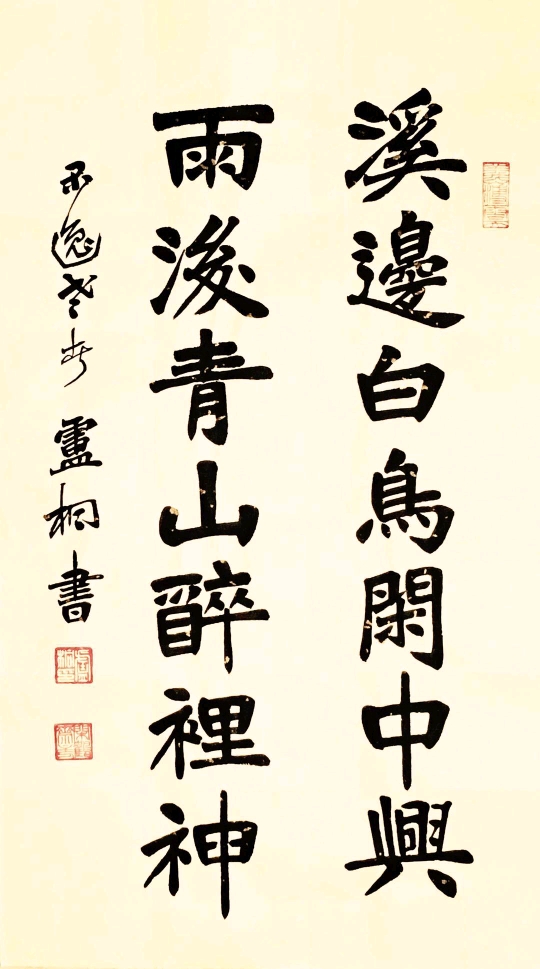 溪邊白鳥閑中興
雨後青山醉裡神
盧桐書